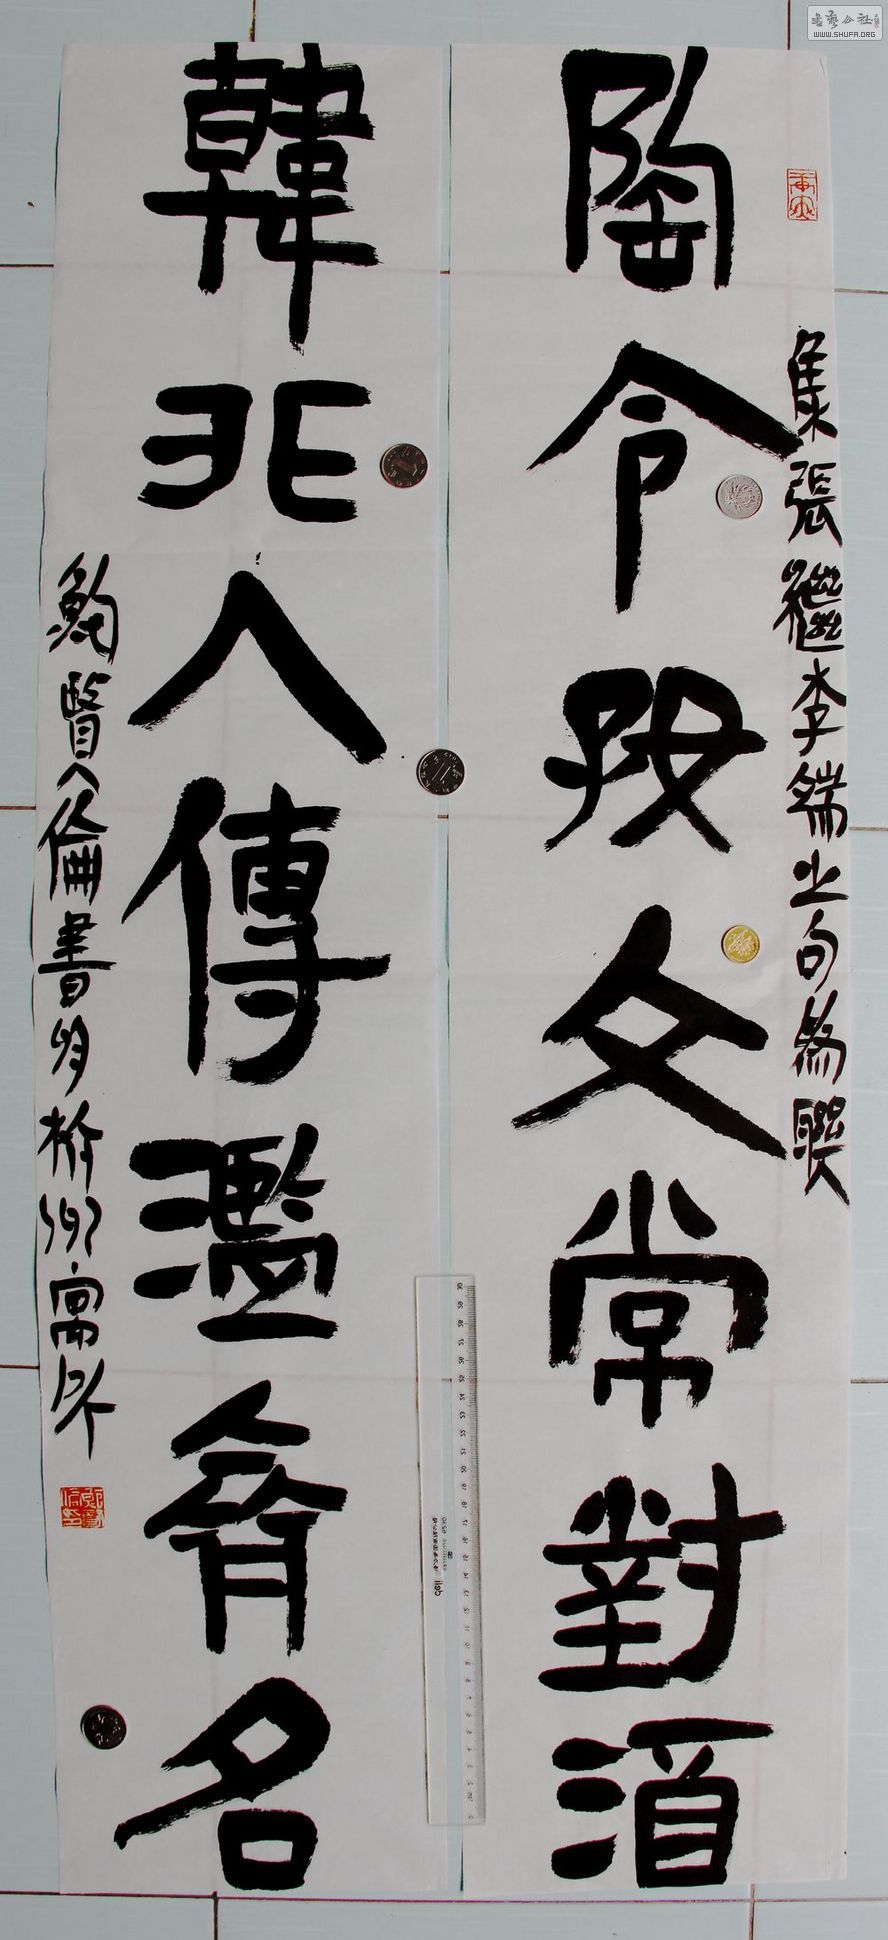 書藝公社
WWW.SHUFA.ORG
集張繼李端之句為聯
陶令好文常對酒
韓非入傳濫齊名
賢人倫書於榆州寓所
deli